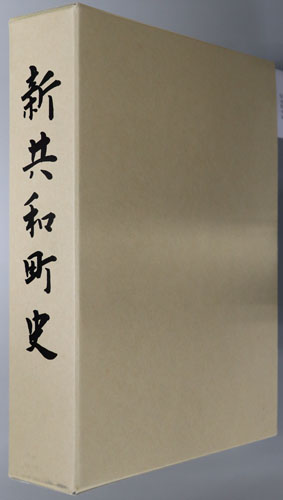 新共和町史